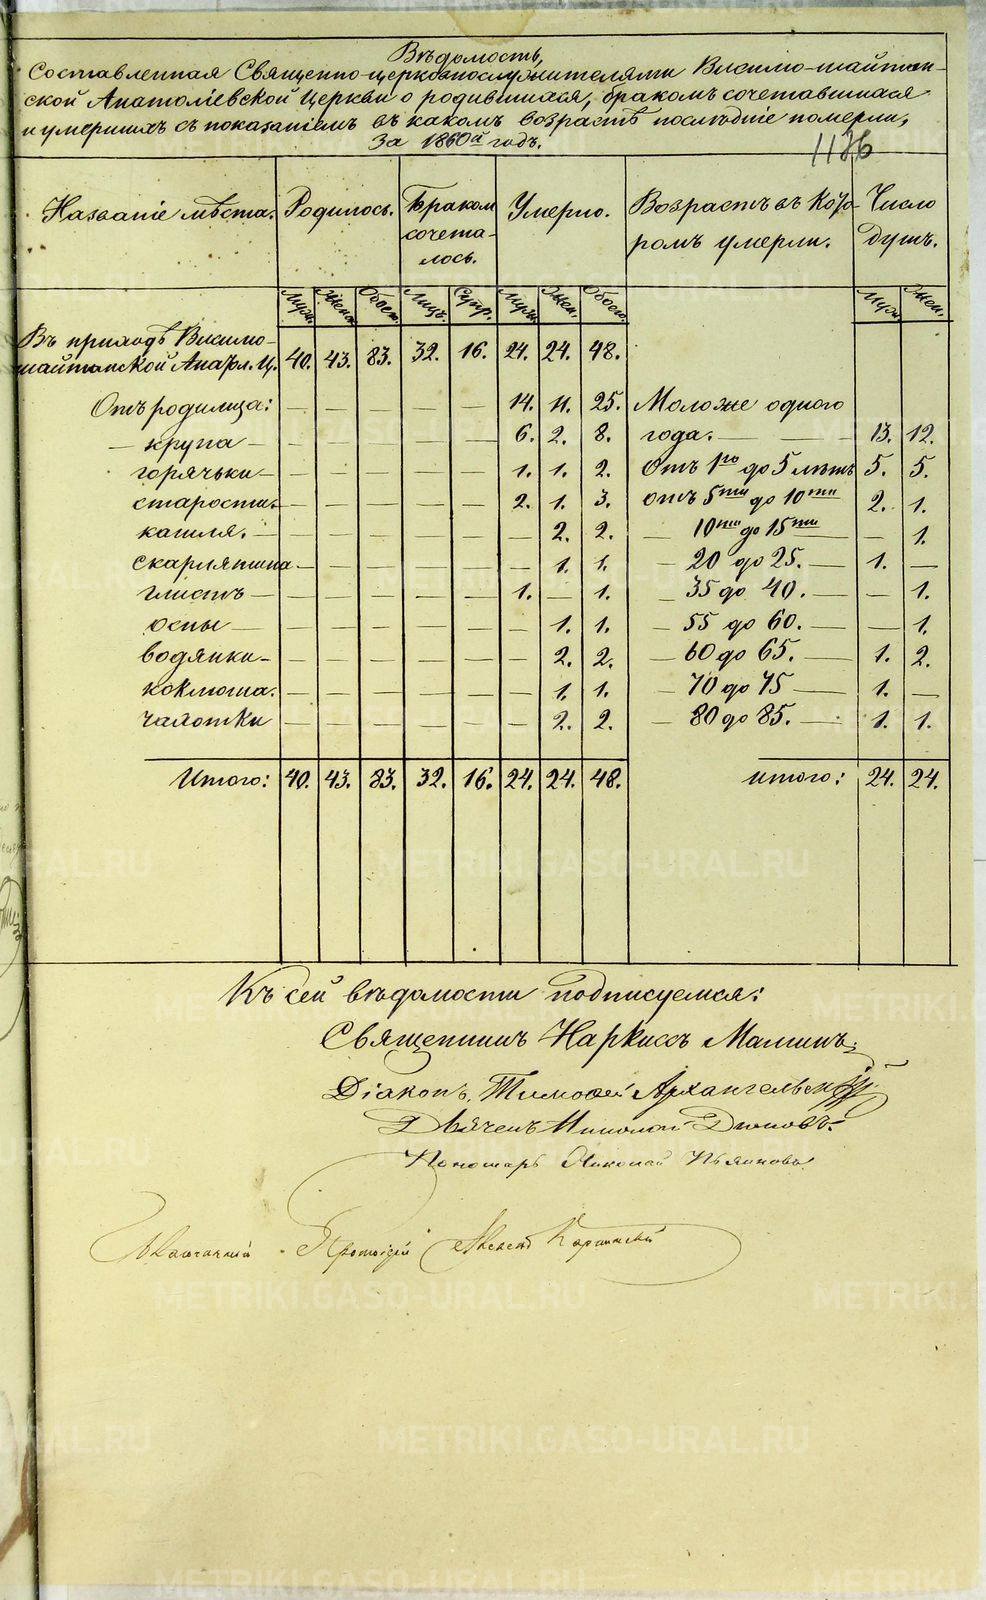 Вѣдомость,
Составленная Священно-церковнослужителями Висимо-шайтан-
ской Анатоліевской Церкви о родившихся, бракомъ сочетавшихся
и умершихъ съ показаніемъ въ какомъ возрастѣ послѣдніе померли,
За 1860й годъ.
1126
Названіе мѣста. Родилось. Бракомъ Умерло. Возрастъ въ кото- Число
сочета- ромъ умерли. душъ.
лось.
Муж. Жен. Обоего. Лицъ. Супр. Муж. Жен. Обоего. Муж. Жен.
Въ приходѣ Висимо-
шайтанской Анатол. Ц. 40. 43. 83. 32. 16. 24. 24. 48.
Отъ родимца: — — — — — 14. 11. 25. Моложе одного
— крупа — — — — — — 6. 2. 8. года. — — 13. 12.
горячьки — — — — — — 1. 1. 2. Отъ 1го до 5 лѣтъ 5. 5.
старости. — — — — — 2. 1. 3. отъ 5ти до 10ти 2. 1.
кашля. — — — — — — — 2. 2. — 10ти до 15ти — — 1.
скарлятина — — — — — — — 1. 1. — 20 до 25. — 1. —
глистъ — — — — — — 1. — 1. — 35 до 40. — — 1.
оспы — — — — — — — 1. 1. — 55 до 60. — — 1.
водянки — — — — — — — 2. 2. — 60 до 65. — 1. 2.
коклюша. — — — — — — 1. 1. — 70 до 75 — 1. —
чахотки — — — — — — 2. 2. — 80 до 85. — 1. 1.
Итого: 40. 43. 83. 32. 16. 24. 24. 48. итого: 24. 24.
Къ сей вѣдомости подписуемся:
Священникъ Наркиссъ Маминъ.
Діаконъ Тимофей Архангельскій
Дьячекъ Николай
Пономарь Николай
Протоіерей
METRIKI.GASO-URAL.RU